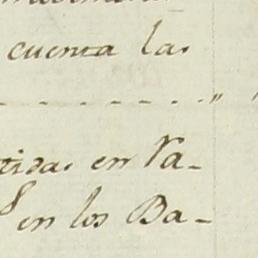 cuenta las
tidas en Va-
en los Ba-